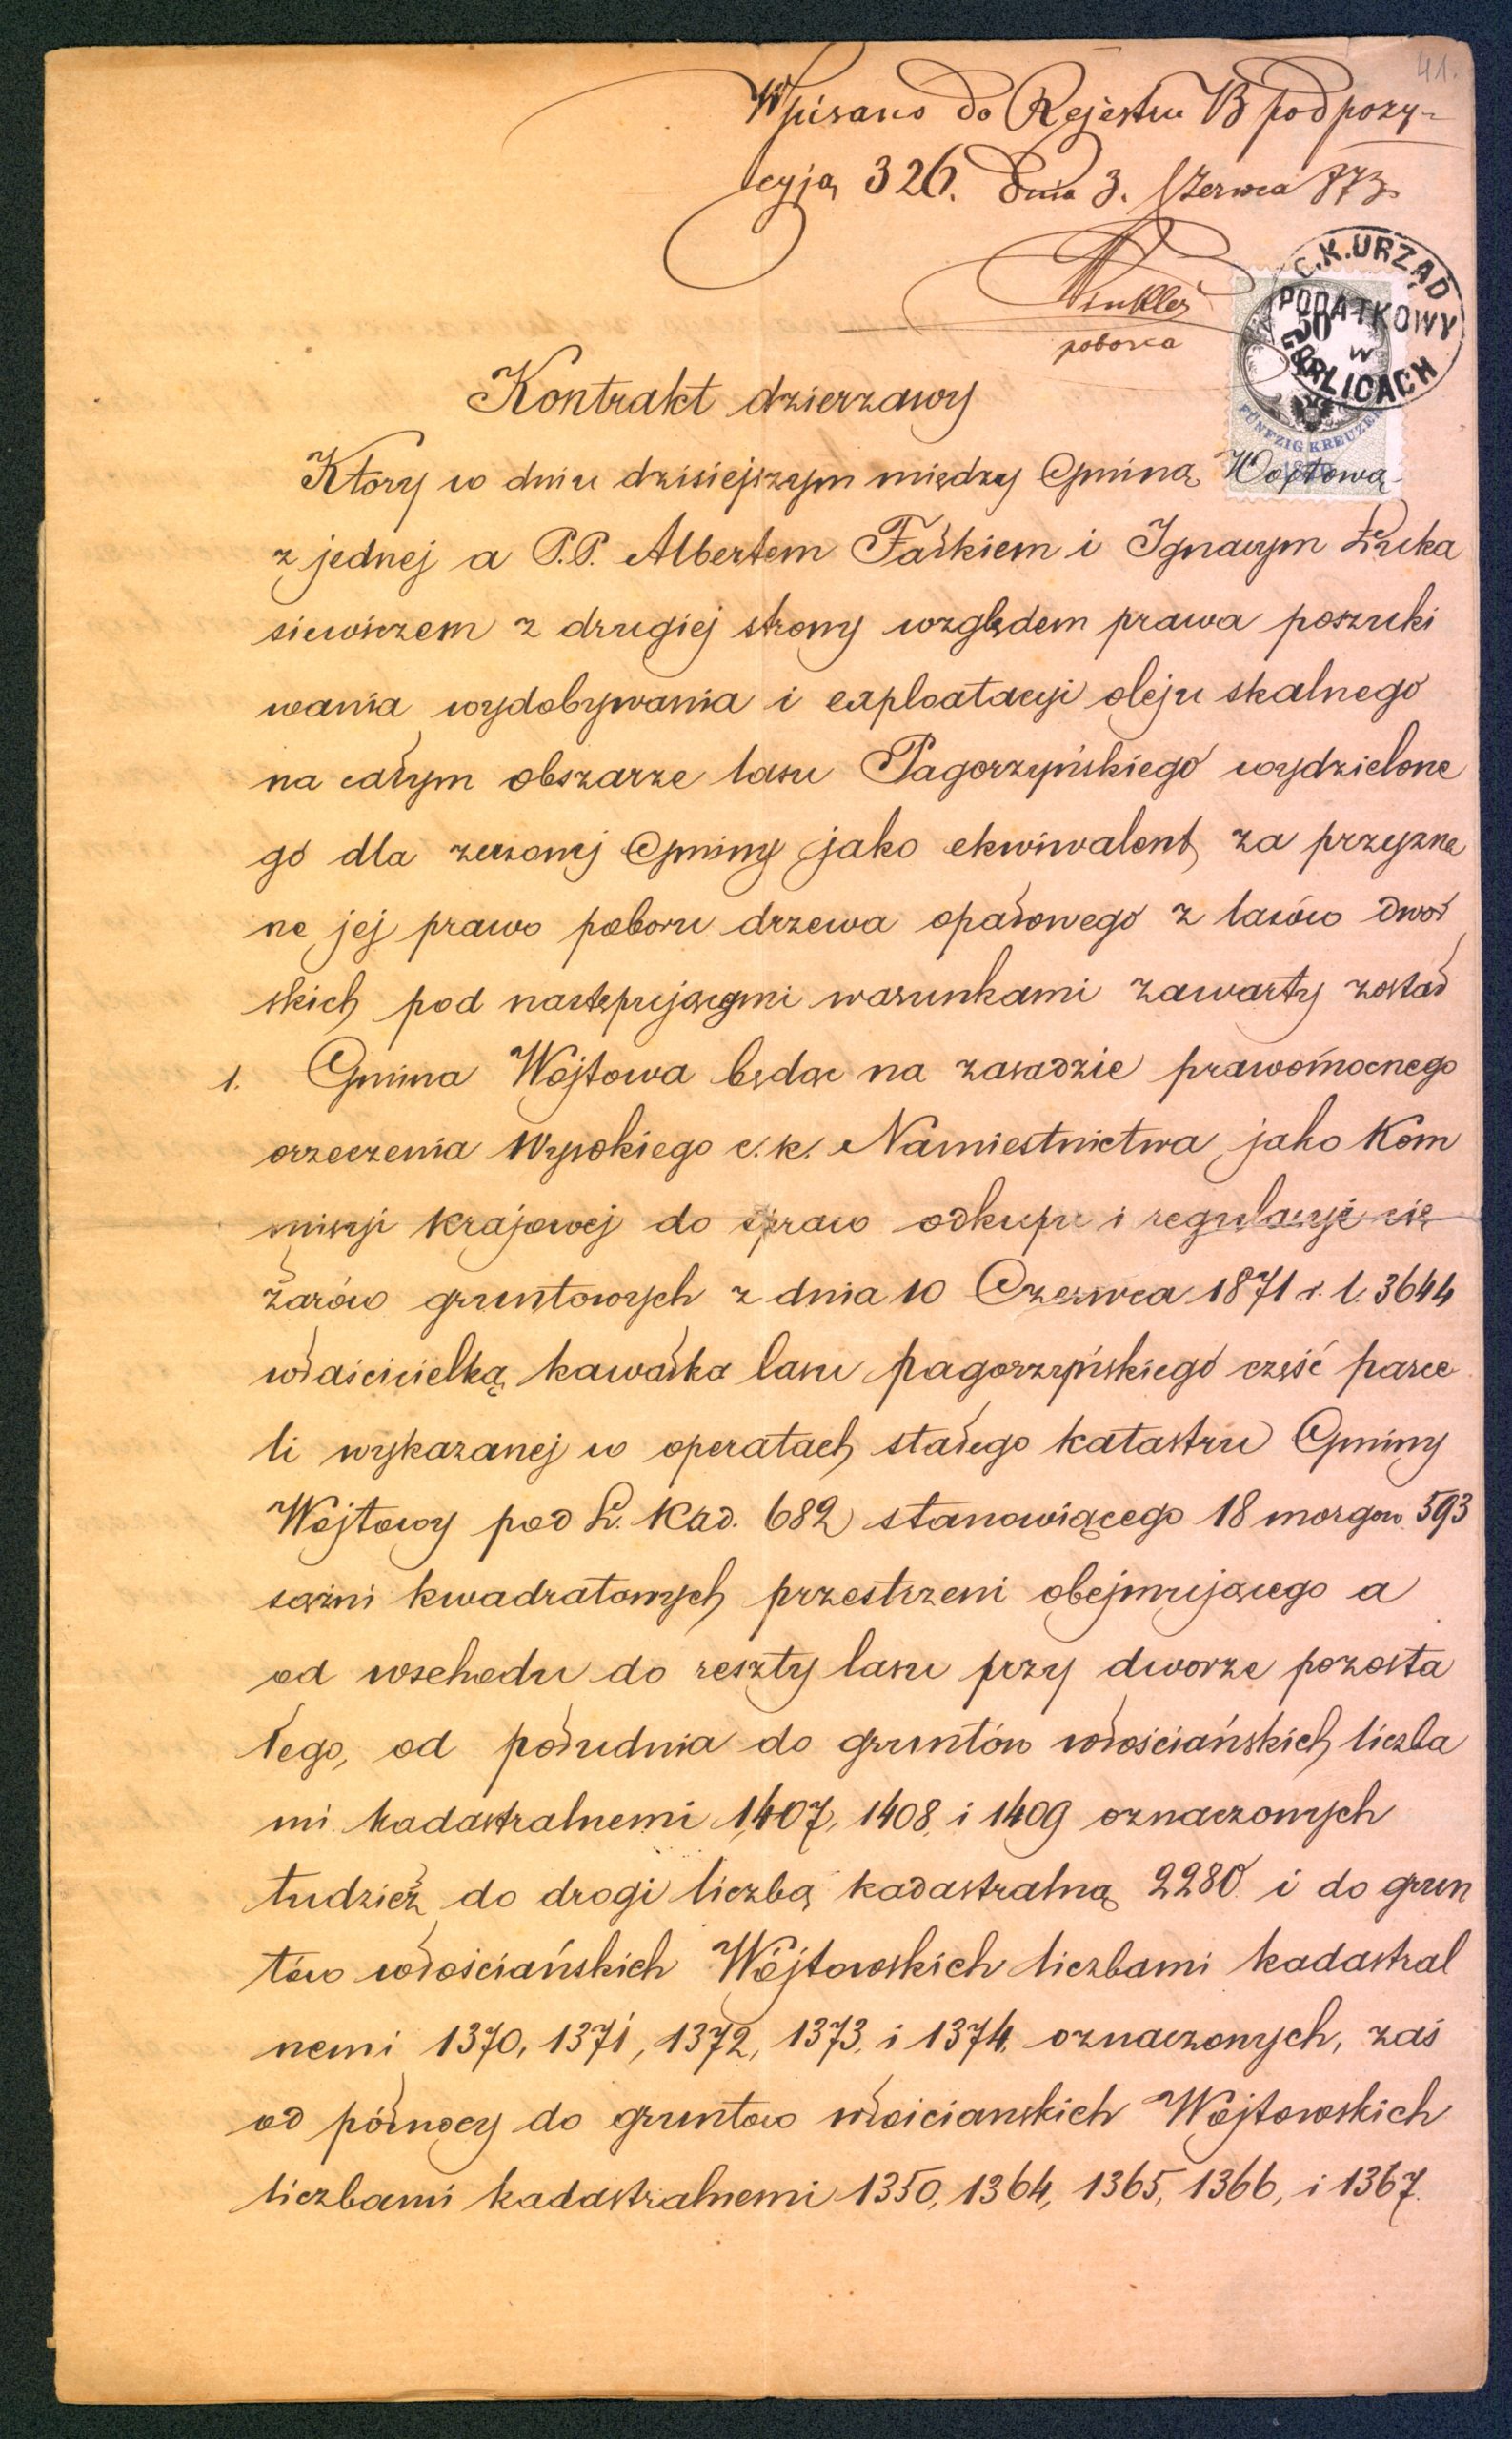 41.
Wpisano do Rejestru B pod pozy-
cyją 326. Dnia 3. Czerwca 873
Winkler
poborca
C.K. URZĄD
PODATKOWY
50
W
GORLICACH
FÜNFZIG KREUZER
Kontrakt dzierzawy
Ktory w dniu dzisiejszym między Gminą Wojtową
z jednej a P.P. Albertem Fałkiem i Ignacym Łuka
siewiczem z drugiej strony względem prawa poszuki
wania wydobywania i exploatacyi oleju skalnego
na całym obszarze lasu Pagorzyńskiego wydzielone
go dla rzeczonej Gminy jako ekwiwalent za przyzna
ne jej prawo poboru drzewa opałowego z lasów dwor
skich pod następującymi warunkami zawarty został
1. Gmina Wojtowa będąc na zasadzie prawomocnego
orzeczenia Wysokiego c. k. Namiestnictwa jako Kom
misyi krajowej do spraw odkupu i regulacyi cię
żarów gruntowych z dnia 10 Czerwca 1871 r. l. 3644
właścicielką kawałka lasu pagorzyńskiego część parce
li wykazanej w operatach stałego katastru Gminy
Wojtowy pod L. Kad. 682 stanowiącego 18 morgow 593
sążni kwadratowych przestrzeni obejmującego a
od wschodu do reszty lasu przy dworze pozosta
łego, od południa do gruntów włościańskich liczba
mi kadastralnemi 1407, 1408, i 1409 oznaczonych
tudzież do drogi liczbą kadastralną 2280 i do grun
tów włościańskich Wójtowskich liczbami kadastral
nemi 1370, 1371, 1372, 1373, i 1374, oznaczonych, zaś
od północy do gruntow włoicianskich Wojtowskich
liczbami kadastralnemi 1350, 1364, 1365, 1366, i 1367.